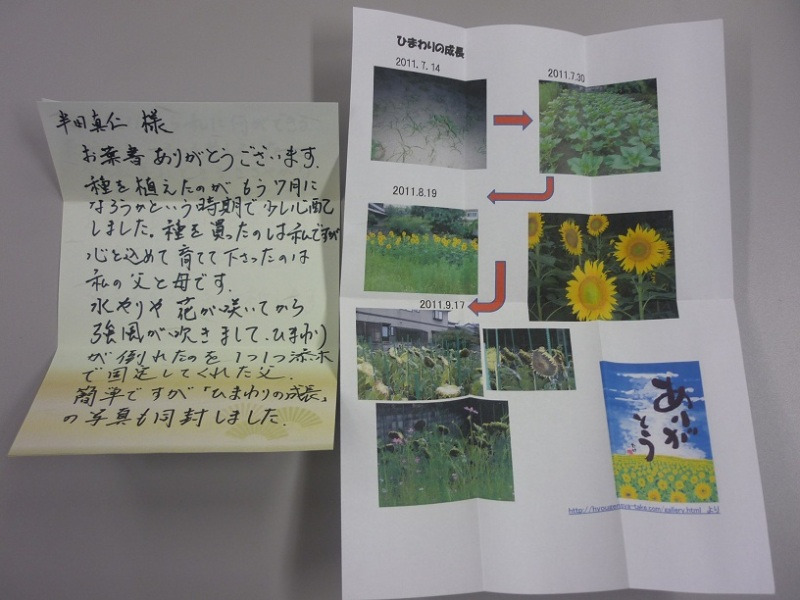 半田真仁 様
お葉書ありがとうございます.
種を植えたのが もう7月に
なろうかという時期で少し心配
しました. 種を買ったのは私ですが
心を込めて育てて下さったのは
私の父と母です.
水やりや 花が咲いてから
強風が吹きまして、ひまわり
が倒れたのを 1つ1つ添木
で固定してくれた父.
簡単ですが「ひまわりの成長」
の写真も同封しました.
ひまわりの成長
2011.7.14
2011.7.30
2011.8.19
2011.9.17
ありが
とう
より